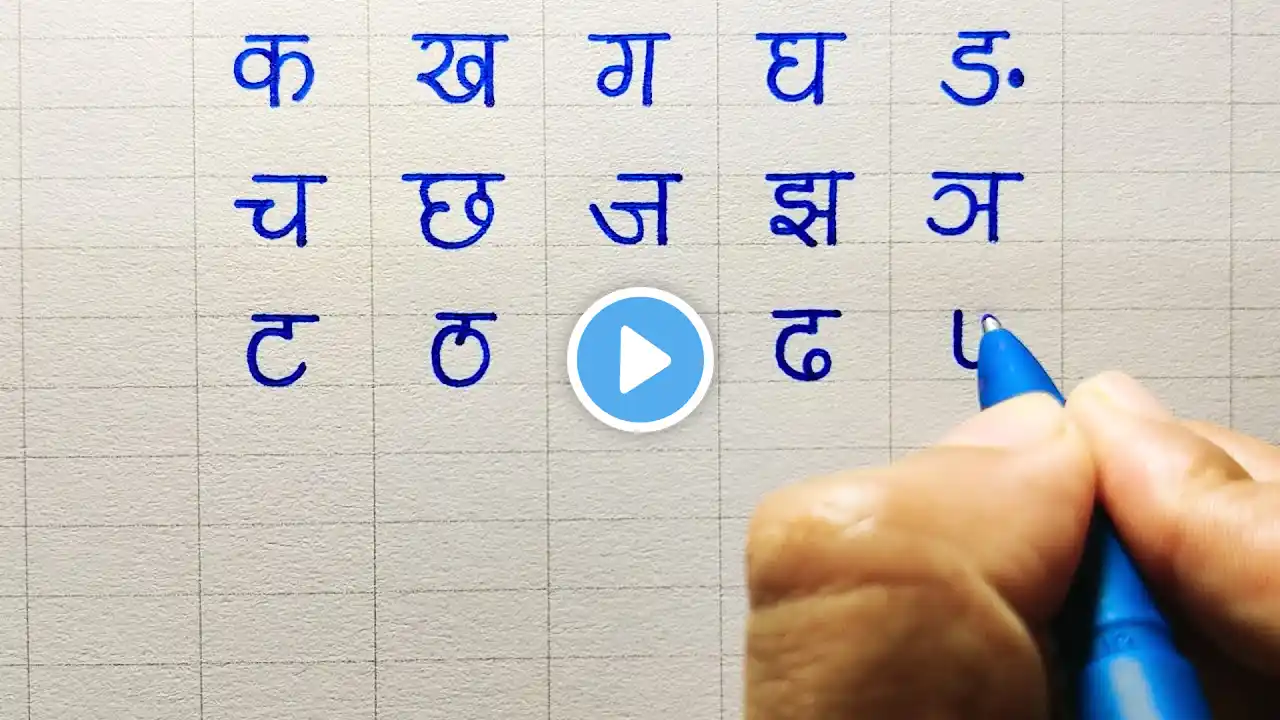 क ख ग घ ङ
च छ ज झ ञ
ट ठ ढ